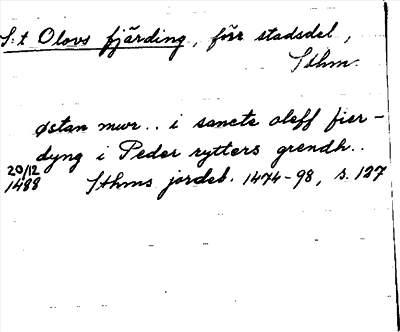 S:t Olovs fjärding, förr stadsdel,
Sthm.
østan mwr.. i sancte oleff fier-
dyng i Peder rytters grendh..
20/12
1488 Sthms jordeb. 1474-98, s. 127